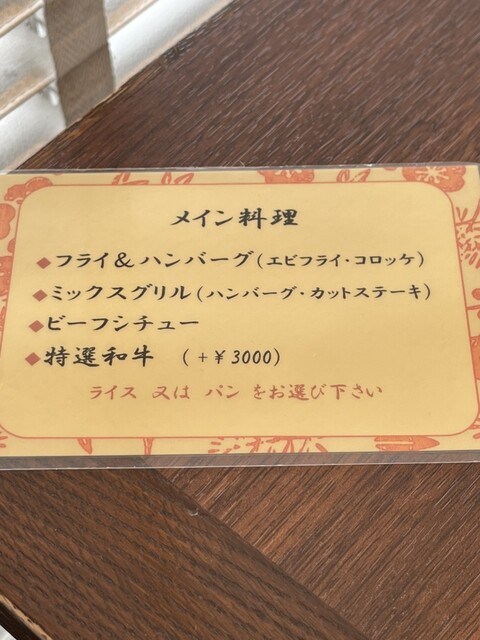 メイン料理
◆フライ&ハンバーグ(エビフライ・コロッケ)
◆ミックスグリル(ハンバーグ・カットステーキ)
◆ビーフシチュー
◆特選和牛 (+¥3000)
ライス 又は パン をお選び下さい